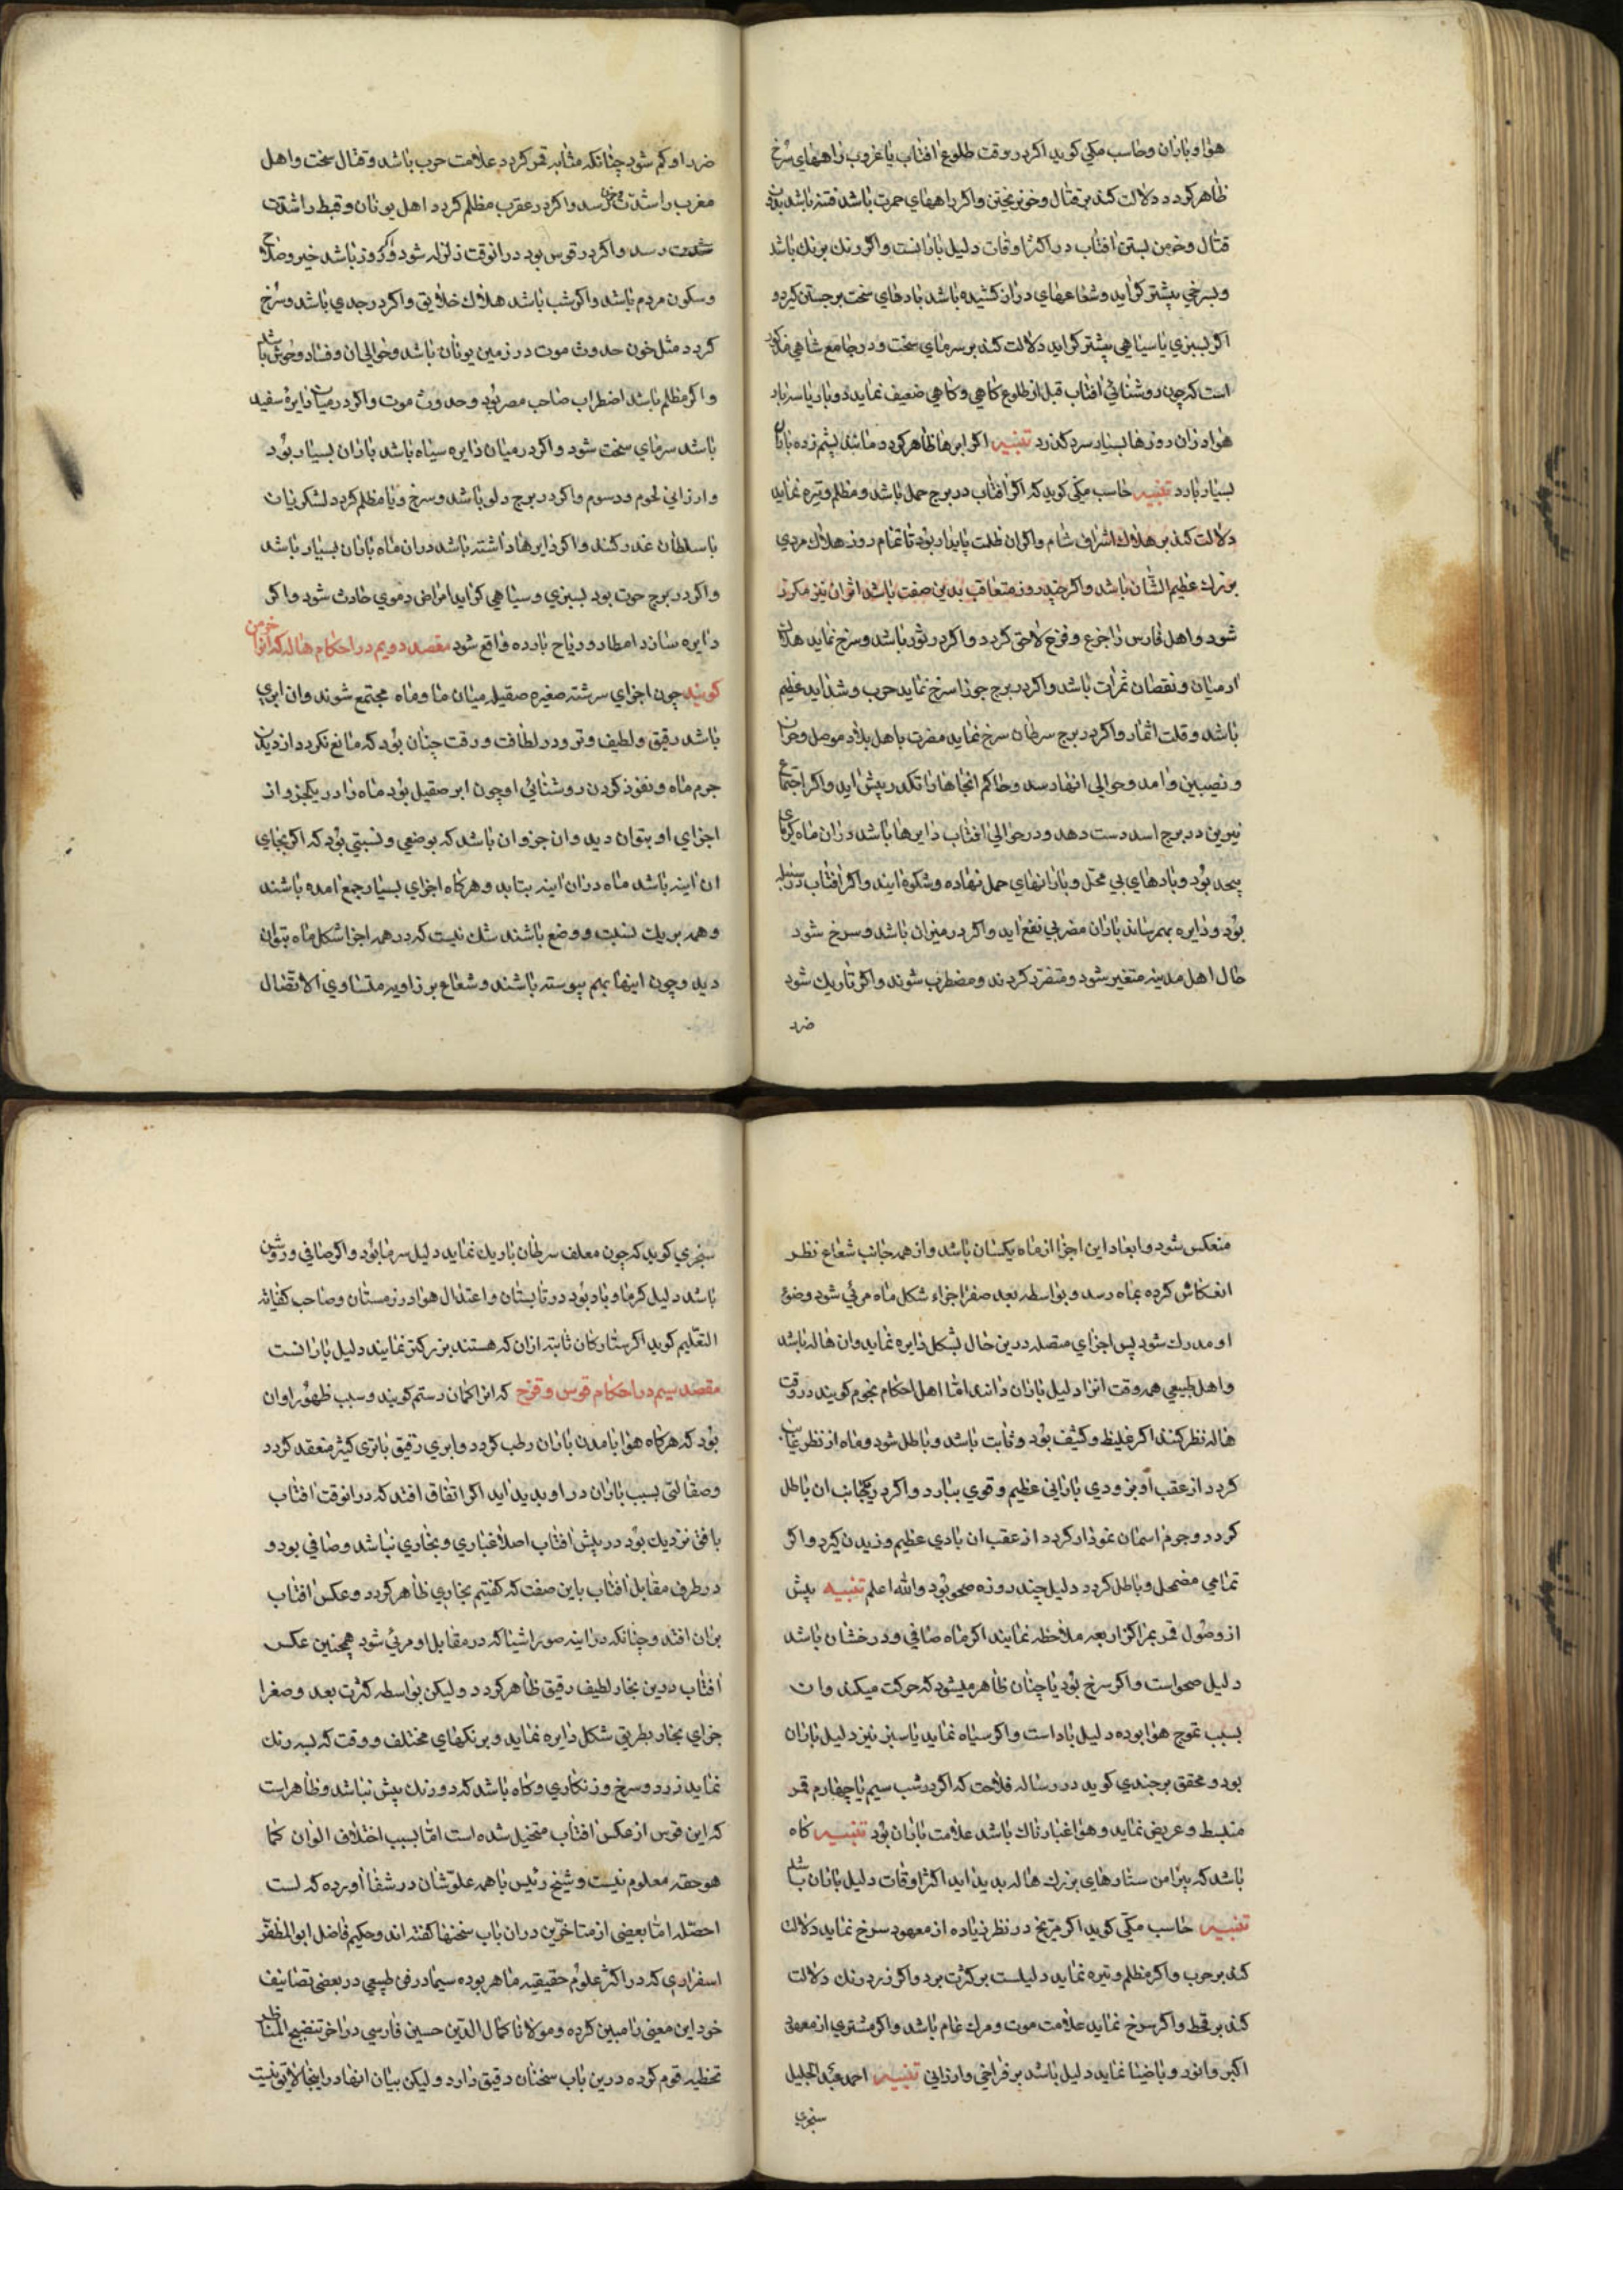 هوا و باران و حاسب مکی کوید اکر در وقت طلوع افتاب یا غروب راههای سرخ
ظاهر کردد دلالت کند بر قتال و خونریختن و اکر راههای حمرت باشد فتنه باشد بدون
قتال و خرمن بستن افتاب در اکثر اوقات دلیل بارانست و اکر رنك برنك باشد
و بسرخی بیشتر کراید و شعاعهای دران کشیده باشد بادهای سخت برجستن کیرد و
اکر بسبزی یا سیاهی بیشتر کراید دلالت کند بر سرمای سخت و در جامع شاهی مذکور
است که چون روشنائی افتاب قبل از طلوع کاهی و کاهی ضعیف نماید دو بار یا سه بار
هوا دران روزها بسیار سرد کذرد تنبیه اکر ابرها ظاهر کردد مانند پشم زده باران
بسیار بارد تنبیه حاسب مکی کوید که اکر افتاب در برج حمل باشد و مظلم و تیره نماید
دلالت کند بر هلاك اشراف شام و اکر ان ظلمت پایدار بود تا تمام روز هلاك مردی
بزرك عظیم الشان باشد و اکر چند روز متعاقب بدین صفت باشد اثر ان نیز مکرر
شود و اهل فارس را جزع و فزع لاحق کردد و اکر در ثور باشد و سرخ نماید هلاك
ادمیان و نقصان ثمرات باشد و اکر در برج جوزا سرخ نماید حرب و شداید عظیم
باشد و قلت اثمار و اکر در برج سرطان سرخ نماید مضرت باهل بلاد موصل و حران
و نصیبین و امد و حوالی انها رسد و حاکم انجاها را نکد در پیش اید و اکر اجتماع
نیرین در برج اسد دست دهد و در حوالی افتاب دایرها باشد دران ماه کرمای
بیحد بود و بادهای بی محل و بارانهای حمل نهاده و شکوه ایند و اکر افتاب در سنبله
بود و دایره بهم رساند باران مضر بی نفع اید و اکر در میزان باشد و سرخ شود
حال اهل مدینه متغیر شود و متفرد کردند و مضطرب شوند و اکر تاریك شود
ضرد
ضرد او کم شود چنانکه مثابه قمر کردد علامت حرب باشد و قتال سخت و اهل
مغرب را شدت و حزن رسد و اکر در عقرب مظلم کردد اهل یونان و قبط را شدت
شدت رسد و اکر در قوس بود در انوقت زلزله شود و اکر روز باشد خیر و صلاح
و سکون مردم باشد و اکر شب باشد هلاك خلایق و اکر در جدی باشد و سرخ
کردد مثل خون حدوث موت در زمین یونان باشد و حوالی ان و فساد وحوش باشد
و اکر مظلم باشد اضطراب صاحب مصر بود و حدوث موت و اکر در میان دایرهٔ سفید
باشد سرمای سخت شود و اکر در میان دایره سیاه باشد باران بسیار بود
و ارزانی لحوم و دسوم و اکر در برج دلو باشد و سرخ و یا مظلم کردد لشکریان
با سلطان غدر کنند و اکر دایرها داشته باشد دران ماه باران بسیار باشد
و اکر در برج حوت بود بسبزی و سیاهی کراید امراض دموی حادث شود و اکر
دایره سازد امطار و ریاح بارده واقع شود مقصد دویم در احکام هاله که انرا خرمن
کویند چون اجزای سرشته صغیره صقیله میان ما و ماه مجتمع شوند و ان ابری
باشد رقیق و لطیف و ترو در لطافت و رقت چنان بود که مانع نکردد از دیدن
جرم ماه و نفوذ کردن روشنائی او چون ابر صقیل بود ماه را در یکجزو از
اجزای او بتوان دید و ان جزو ان باشد که بوضعی و نسبتی بود که اکر بجای
ان اینه باشد ماه دران اینه بتابد و هرکاه اجزای بسیار جمع امده باشند
و همه بر یك نسبت و وضع باشند شك نیست که در همه اجزا شکل ماه بتوان
دید و چون اینها بهم پیوسته باشند و شعاع بر زاویه متساوی الاتصال
منعکس شود و ابعاد این اجزا از ماه یکسان باشد و از همه جانب شعاع نظر
انعکاس کرده بماه رسد و بواسطه بعد صغر اجزاء شکل ماه مرئی شود و ضوء
او مدرك شود پس اجزای متصله درین حال بشکل دایره نماید و ان هاله باشد
و اهل طبیعی همه وقت انرا دلیل باران دانند اما اهل احکام نجوم کویند در وقت
هاله نظر کنند اکر غلیظ و کثیف بود و ثابت باشد و باطل شود و ماه از نظر غایب
کردد از عقب او بزودی بارانی عظیم و قوی ببارد و اکر در یکجانب ان باطل
کردد و جرم اسمان نمودار کردد از عقب ان بادی عظیم وزیدن کیرد و اکر
تمامی مضمحل و باطل کردد دلیل چند روزه صحو بود والله اعلم تنبیه پیش
از وصول قمر بمراکز اربعه ملاحظه نمایند اکر ماه صافی و درخشان باشد
دلیل صحو است و اکر سرخ بود یا چنان ظاهر میشود که حرکت میکند و ان
بسبب تموج هوا بوده دلیل باد است و اکر سیاه نماید یا سبز نیز دلیل باران
بود و محقق برجندی کوید در رساله فلاحت که اکر در شب سیم یا چهارم قمر
منبسط و عریض نماید و هوا غبارناك باشد علامت باران بود تنبیه کاه
باشد که پیرامن ستارهای بزرك هاله پدید اید اکثر اوقات دلیل باران باشد
تنبیه حاسب مکی کوید اکر مریخ در نظر زیاده از معهود سرخ نماید دلالت
کند بر حرب و اکر مظلم و تیره نماید دلیلست بر کثرت برد و اکر زرد رنك دلالت
کند بر قحط و اکر سرخ نماید علامت موت و مرك عام باشد و اکر مشتری از معهود
اکبر و انور و با ضیا نماید دلیل باشد بر فراخی و ارزانی تنبیه احمد عبد الجلیل
سنجری
سنجری کوید که چون معلف سرطان باریك نماید دلیل سرما بود و اکر صافی و روشن
باشد دلیل کرما و باد بود در تابستان و اعتدال هوا در زمستان و صاحب کفایة
التعلیم کوید اکر ستارکان ثابته ازان که هستند بزرکتر نمایند دلیل بارانست
مقصد سیم در احکام قوس و قزح که انرا کمان رستم کویند و سبب ظهور او ان
بود که هرکاه هوا بامدن باران رطب کردد و ابری رقیق باتری کثیر منعقد کردد
و صقالتی بسبب باران در او پدید اید اکر اتفاق افتد که در انوقت افتاب
بافق نزدیك بود در پیش افتاب اصلا غباری و بخاری نباشد و صافی بود و
در طرف مقابل افتاب باین صفت که کفتیم بخاری ظاهر کردد و عکس افتاب
بران افتد و چنانکه در اینه صور اشیا که در مقابل او مرئی شود همچنین عکس
افتاب درین بخار لطیف رقیق ظاهر کردد و لیکن بواسطه کثرت بعد و صغرا
جزای بخار بطریق شکل دایره نماید و برنکهای مختلف و وقت که بسه رنك
نماید زرد و سرخ و زنکاری و کاه باشد که دو رنك بیش نباشد و ظاهر است
که این قوس از عکس افتاب متخیل شده است اما بسبب اختلاف الوان کما
هو حقه معلوم نیست و شیخ رئیس با همه علو شان در شفا اورده که لست
احصله اما بعضی از متاخرین دران باب سخنها کفته اند و حکیم فاضل ابو المظفر
اسفزاری که در اکثر علوم حقیقیه ماهر بوده سیما در فن طبیعی در بعضی تصانیف
خود این معنی را مبین کرده و مولانا کمال الدین حسین فارسی در اخر تنقیح المناظر
تخطیه قوم کرده درین باب سخنان دقیق دارد و لیکن بیان انها در اینجا لایق نیست